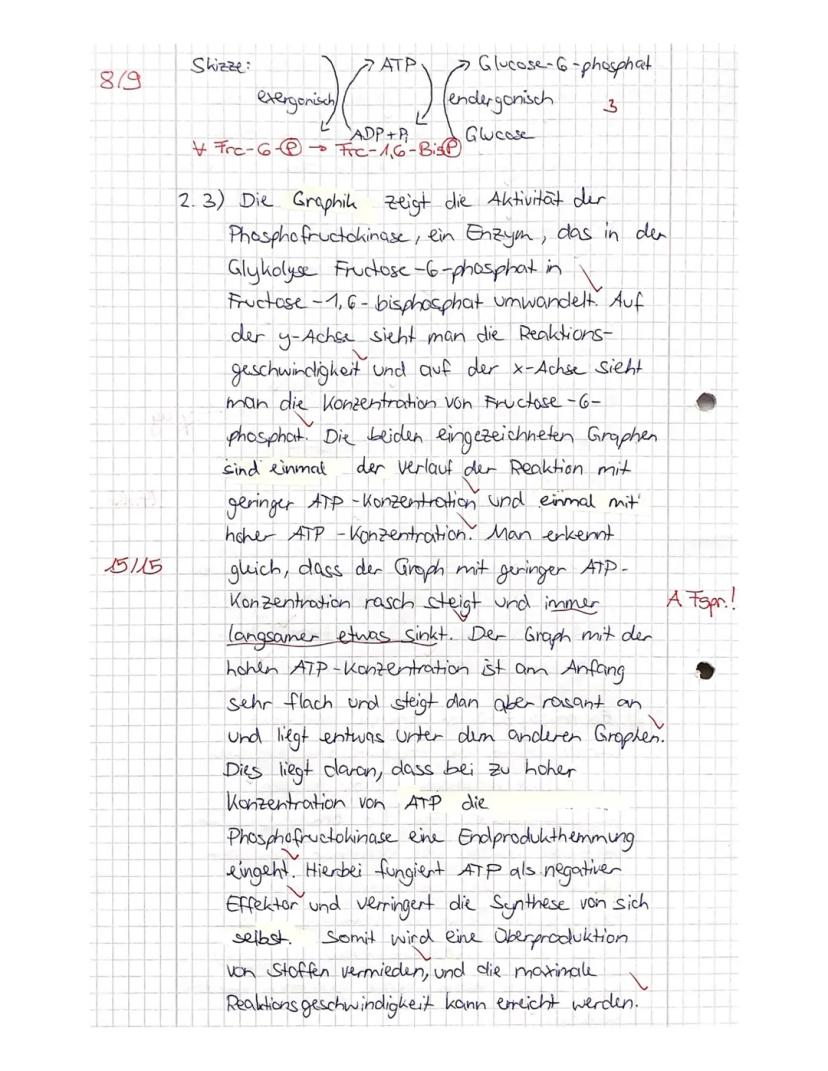 Skizze:
ATP
Glucose-6-phosphat
8/9
exergonisch
endergonisch
3
ADP+Pᵢ
Glucose
Frc-6-P → Frc-1,6-BisP
2.3) Die Graphik zeigt die Aktivität der
Phosphofructokinase, ein Enzym, das in der
Glykolyse Fructose-6-phosphat in
Fructose-1,6-bisphosphat umwandelt. Auf
der y-Achse sieht man die Reaktions-
geschwindigkeit und auf der x-Achse sieht
man die Konzentration von Fructose-6-
phosphat. Die beiden eingezeichneten Graphen
sind einmal der Verlauf der Reaktion mit
geringer ATP-Konzentration und einmal mit
hoher ATP-Konzentration. Man erkennt
15/15
gleich, dass der Graph mit geringer ATP-
Konzentration rasch steigt und immer
A Fspr.!
langsamer etwas sinkt. Der Graph mit der
hohen ATP-Konzentration ist am Anfang
sehr flach und steigt dan aber rasant an
und liegt entwas unter dem anderen Graphen.
Dies liegt daran, dass bei zu hoher
Konzentration von ATP die
Phosphofructokinase eine Endprodukthemmung
eingeht. Hierbei fungiert ATP als negativer
Effektor und verringert die Synthese von sich
selbst. Somit wird eine Überproduktion
von Stoffen vermieden, und die maximale
Reaktionsgeschwindigkeit kann erreicht werden.